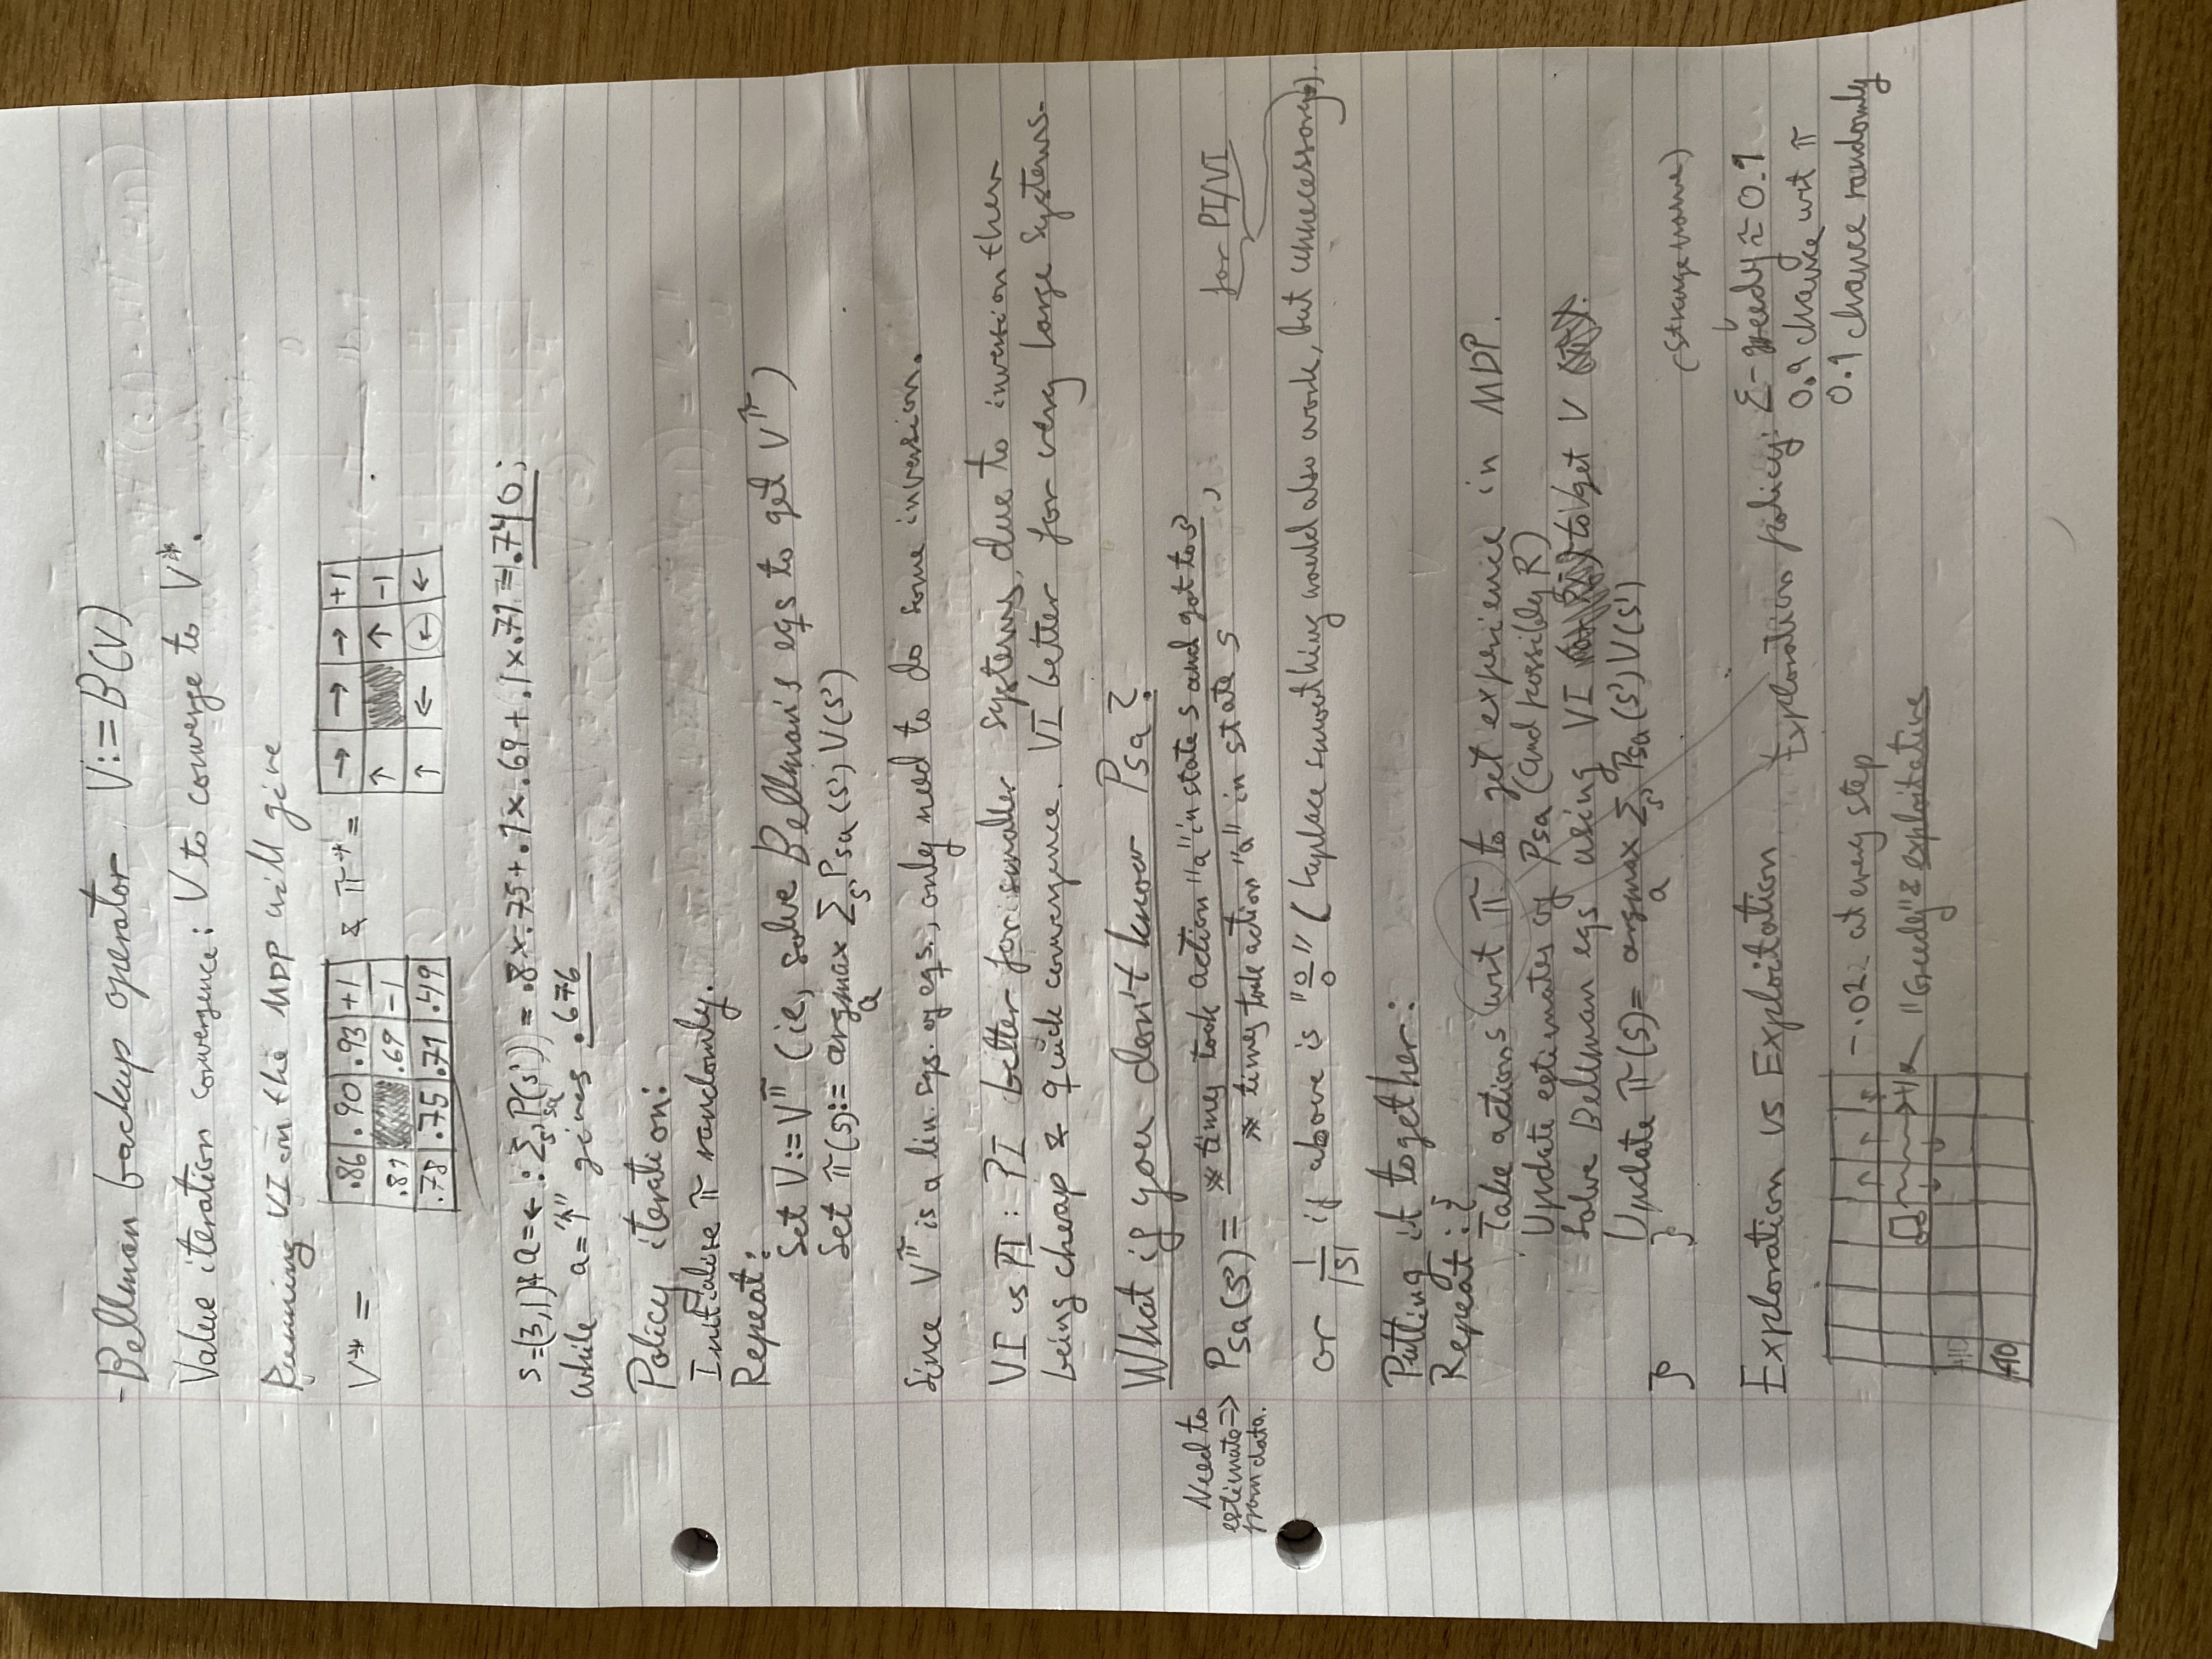 - Bellman backup operator V:=B(V)
Value iteration convergence: V to converge to V*.
Running VI on the MDP will give
V* = .86 .90 .93 +1 & π* = → → → +1
.82 .69 -1 ↑ ↑ -1
.78 .75 .71 .49 ↑ ← ← ←
s=(3,1) & a=← : Σs' Psa(s') = .8×.75+.1×.69+.1×.71=.740;
while a="↑" gives .676
Policy iteration:
Initialise π randomly.
Repeat:
Set V:=V^π (ie, solve Bellman's eqs to get V^π)
Set π(s):= argmax_a Σs' Psa(s')V(s')
Since V^π is a lin. sys. of eqs., only need to do some inversion.
VI vs PI: PI better for smaller systems, due to inversion then
being cheap & quick convergence. VI better for very large systems.
What if you don't know Psa?
Need to
estimate =>
from data.
Psa(s') = # times took action "a" in state s and got to s' ,
# times took action "a" in state s
for PI/VI
or 1/|S| if above is "0/0" (Laplace smoothing would also work, but unnecessary).
Putting it together:
Repeat: {
Take actions wrt π to get experience in MDP.
Update estimates of Psa (and possibly R)
Solve Bellman eqs using VI to get V
Update π(s)= argmax_a Σs' Psa(s')V(s')
} }
(strange name)
↓
Exploration vs Exploitation Exploration policy: Ɛ-greedy ≈ 0.1
0.9 chance wrt π
0.1 chance randomly
-.02 at every step
+1 ← "Greedy" & exploitative
+10
+10